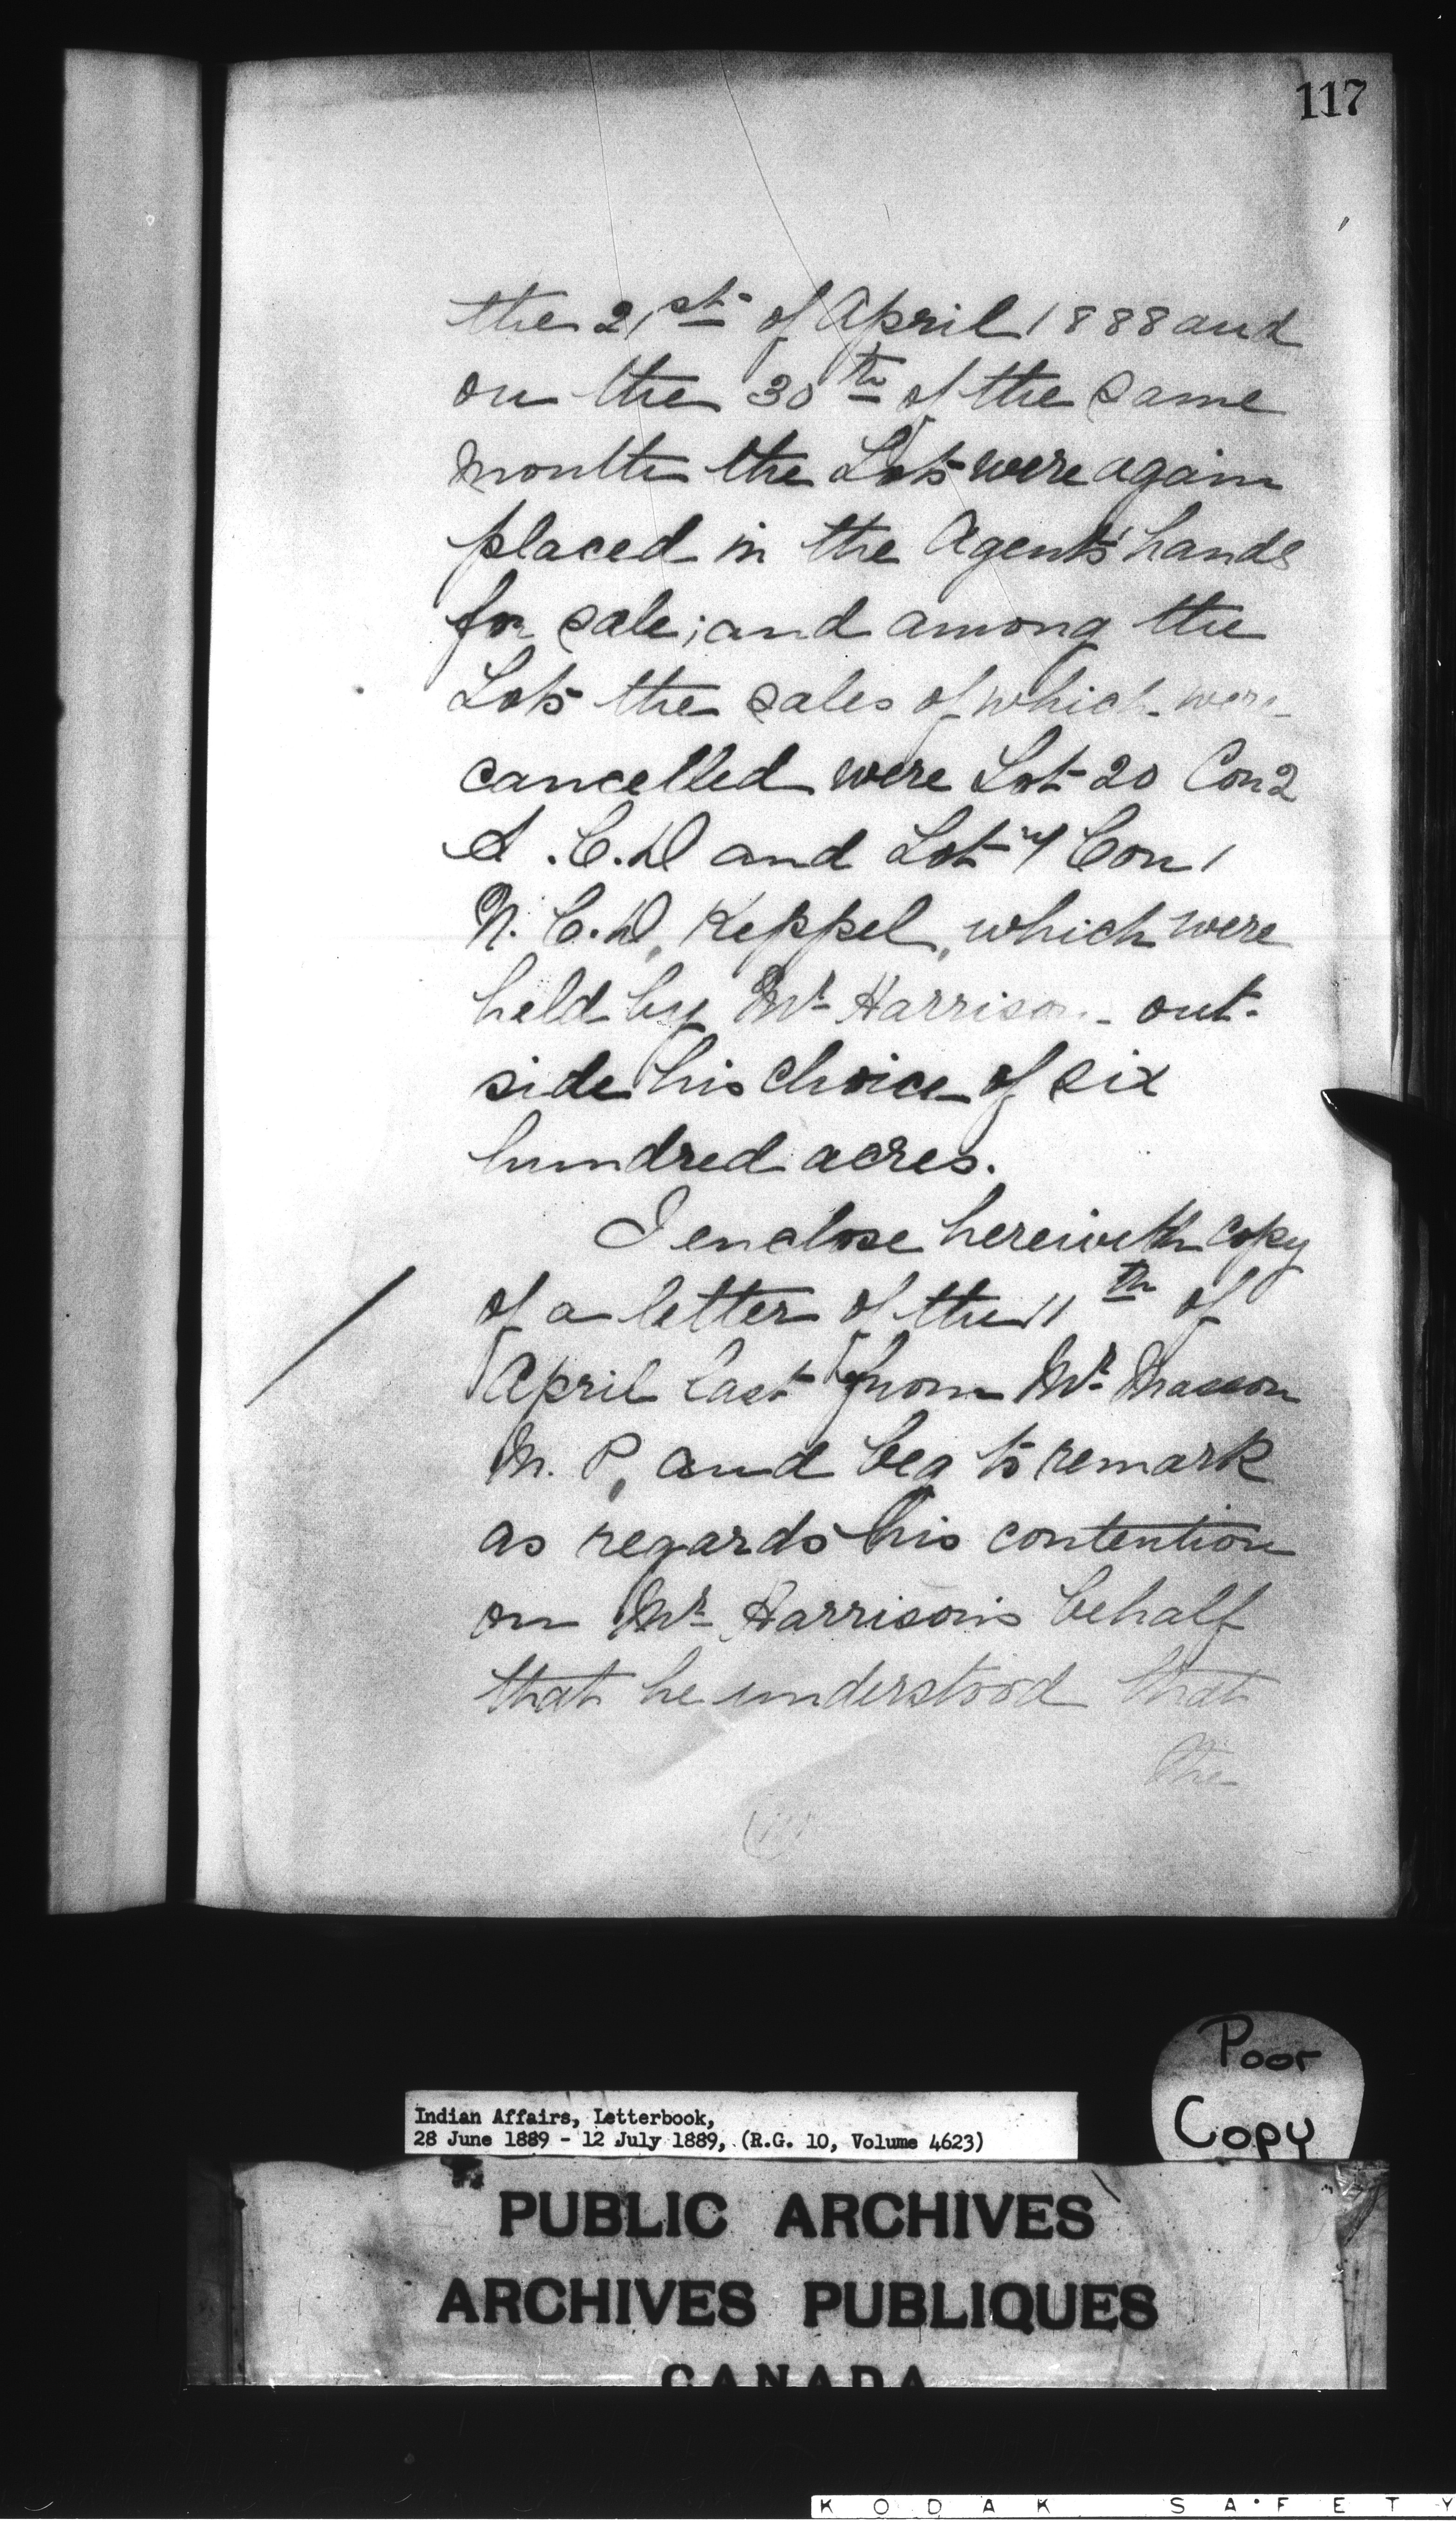 117
the 21st of April 1888 and
on the 30th of the same
month the Lots were again
placed in the Agent's hands
for sale; and among the
Lots the sales of which were
cancelled were Lot 20 Con 2
S. C. D and Lot Con 1
N. C. D, Keppel, which were
held by Mr Harrison out-
side his choice of six
hundred acres.
I enclose herewith copy
of a letter of the 11th of
April last from Mr Masson
M. P, and beg to remark
as regards his contention
on Mr Harrison's behalf
that he understood that
the
Poor
Copy
Indian Affairs, Letterbook,
28 June 1889 - 12 July 1889, (R.G. 10, Volume 4623)
PUBLIC ARCHIVES
ARCHIVES PUBLIQUES
CANADA
KODAK SAFETY